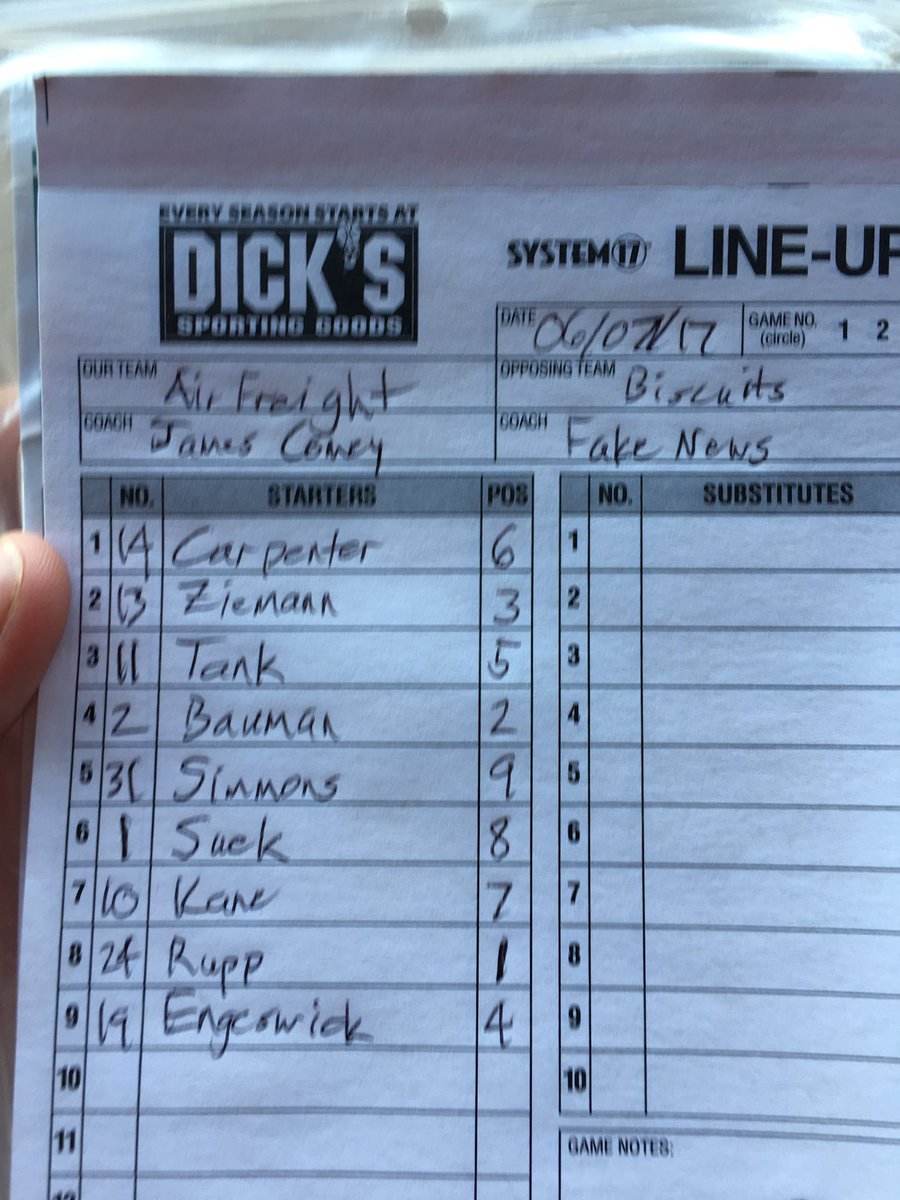 EVERY SEASON STARTS AT
DICK'S
SPORTING GOODS
SYSTEM 17 LINE-UP
DATE 06/07/17 GAME NO. (circle) 1 2
OUR TEAM Air Freight OPPOSING TEAM Biscuits
COACH James Comey COACH Fake News
NO. STARTERS POS NO. SUBSTITUTES
1 14 Carpenter 6 1
2 13 Ziemann 3 2
3 11 Tank 5 3
4 2 Bauman 2 4
5 31 Simmons 9 5
6 1 Suck 8 6
7 10 Kane 7 7
8 24 Rupp 1 8
9 19 Engeswick 4 9
10 10
11 GAME NOTES:
12